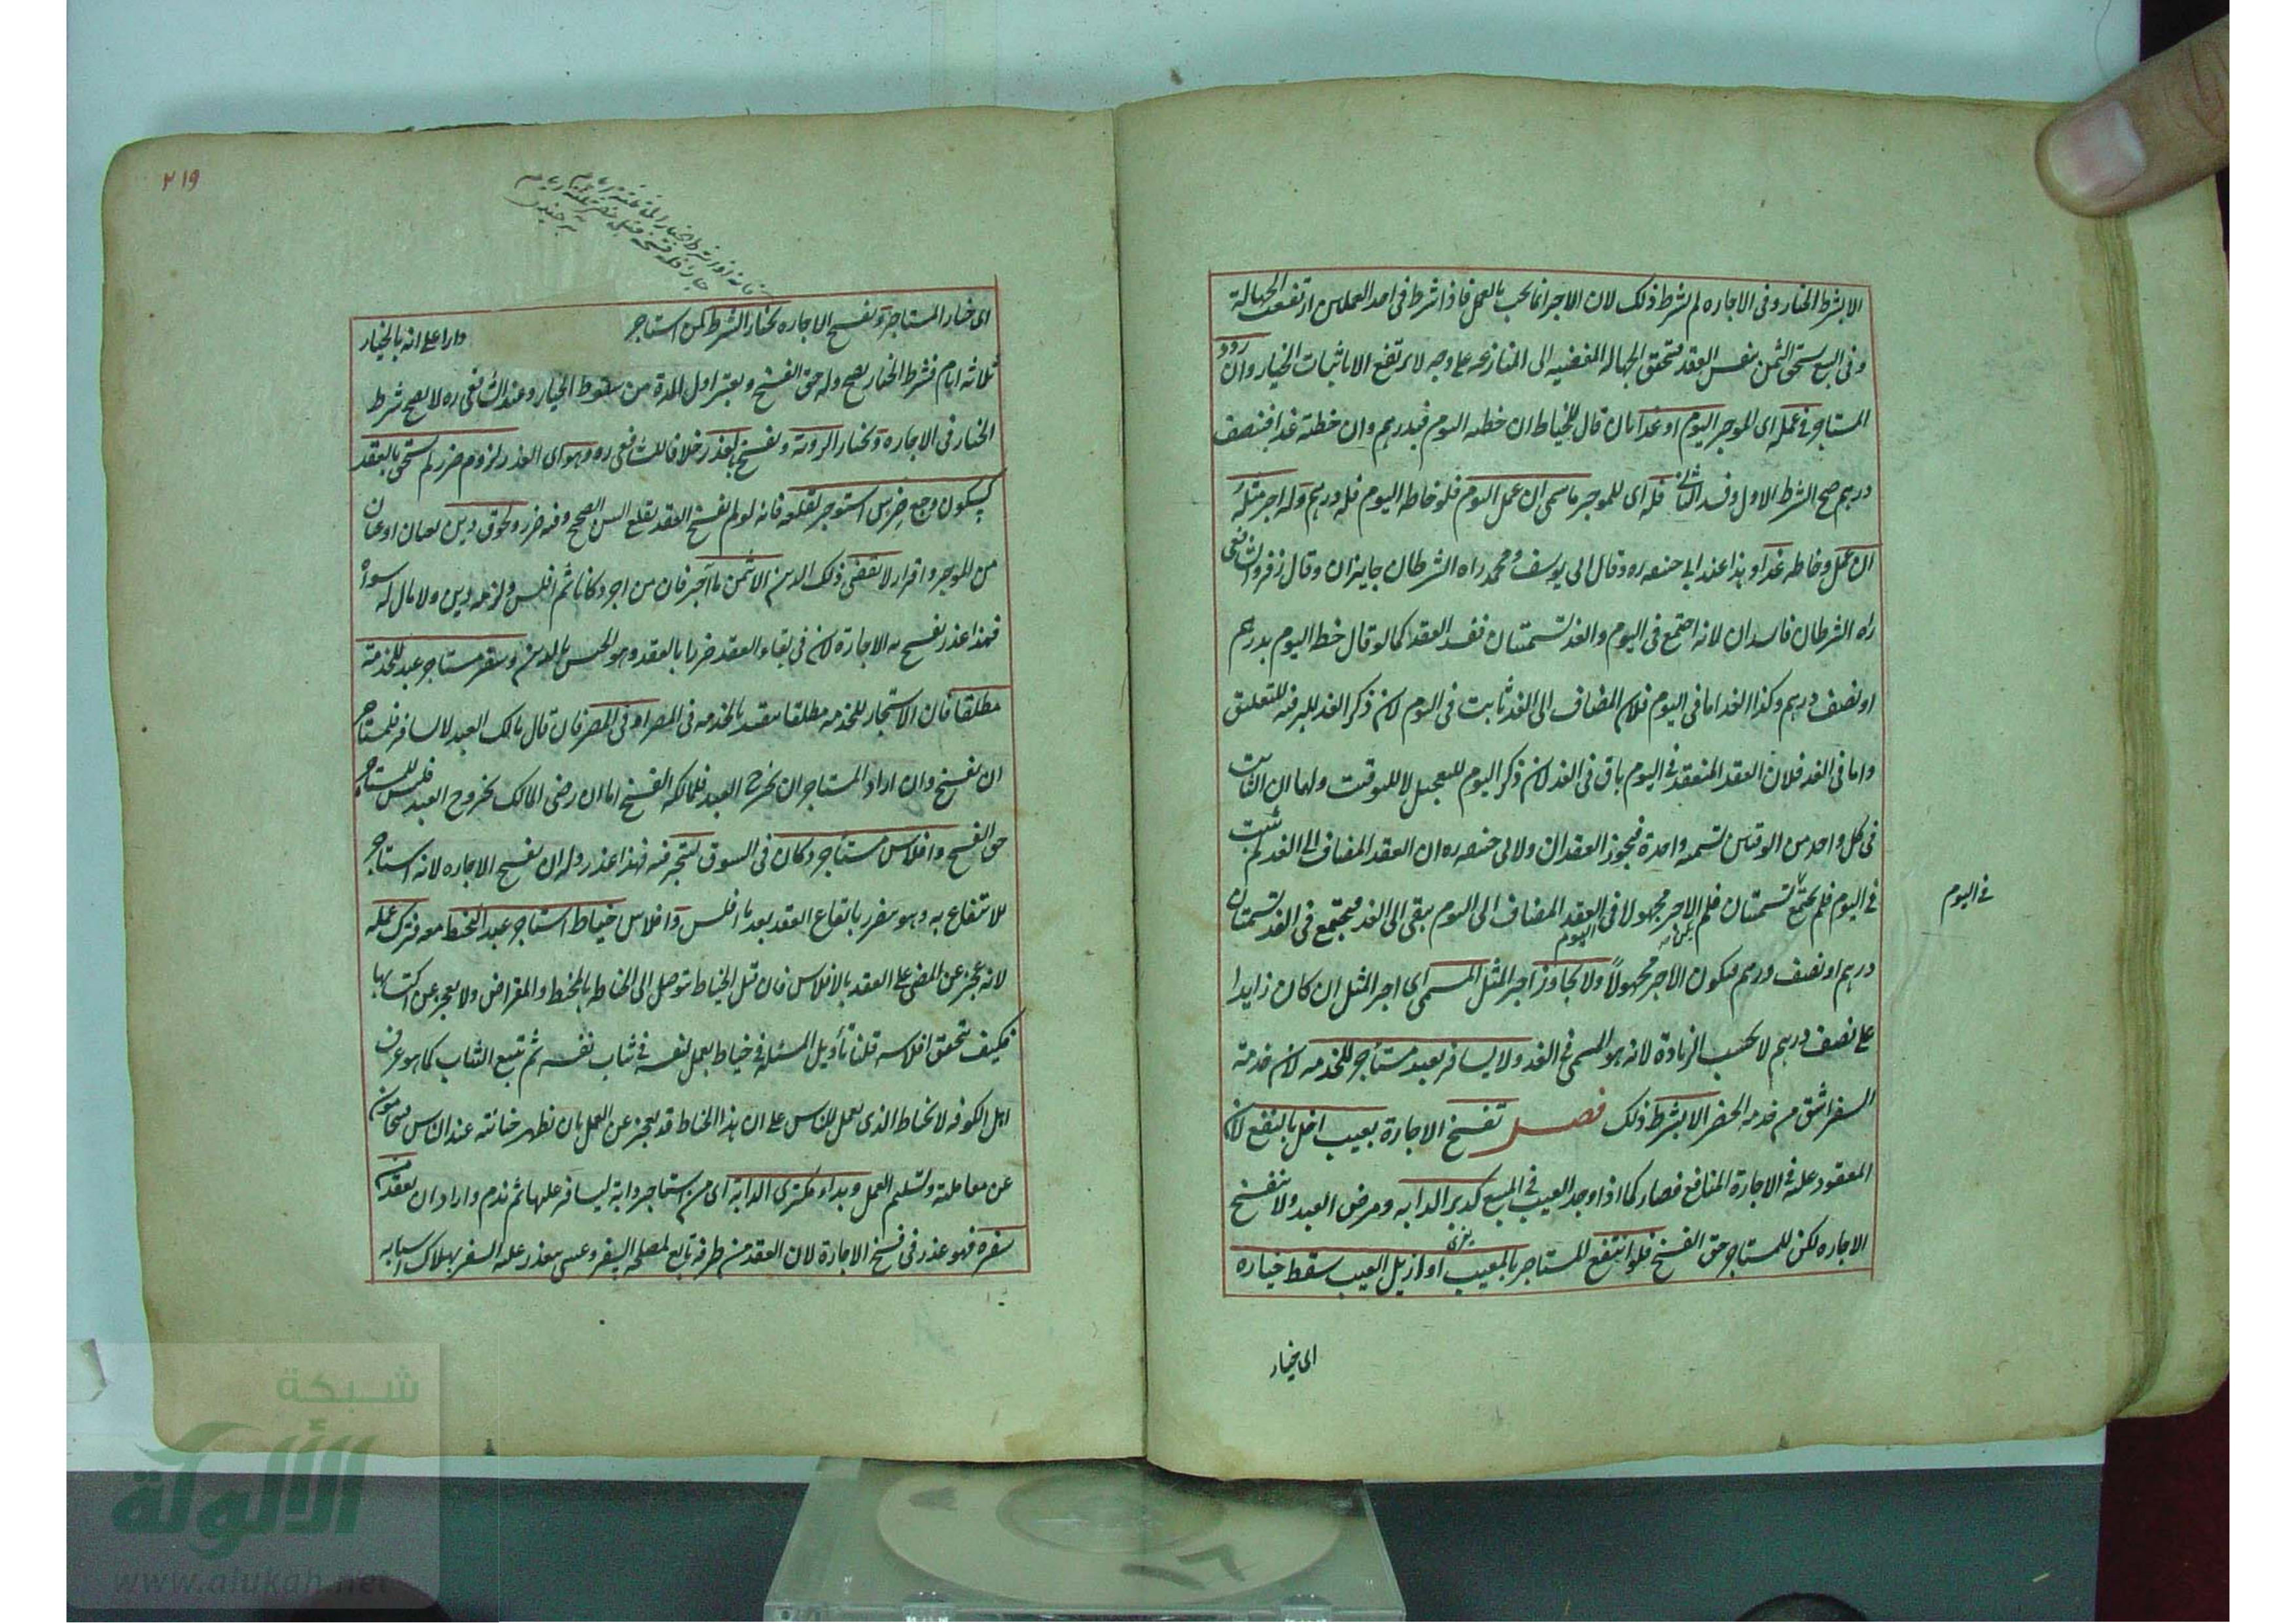 الا بشرط الخيار وفى الاجاره لم يشترط ذلك لان الاجر انما يجب بالعمل فاذا شرط فى احد العملين ارتفعت الجهالة
وفى البيع يستحق الثمن بنفس العقد فتحقق الجهاله المفضيه الى المنازعه على وجه لا يرتفع الا باثبات الخيار وان ردد
المستاجر فى عمله اى الموجر اليوم او غدا بان قال للخياط ان خطته اليوم فبدرهم وان خطته غدا فبنصف
درهم صح الشرط الاول وفسد الثانى فله اى للموجر ما سمى ان عمل اليوم فلو خاطه اليوم فله درهم وله اجر مثله
ان عمل وخاطه غدا وهذا عند ابى حنيفه ره وقال ابى يوسف ومحمد راه الشرطان جايزان وقال زفر والشافعى
راه الشرطان فاسدان لانه اجتمع فى اليوم والغد تسميتان فيفسد العقد كما لو قال خط اليوم بدرهم
او نصف درهم وكذا الغد اما فى اليوم فلان المضاف الى الغد ثابت فى اليوم لان ذكر الغد للترفيه للتعليق
واما فى الغد فلان العقد المنعقد فى اليوم باق فى الغد لان ذكر اليوم للتعجيل لا للتوقيت ولهما ان الثابت
فى كل واحد من الوقتين تسميه واحدة فيجوز العقدان ولابى حنيفه ره ان العقد المضاف الى الغد لم يثبت
فى اليوم فلم يجتمع تسميتان فلم يكن الاجر مجهولا فى اليوم العقد المضاف الى اليوم يبقى الى الغد فيجتمع فى الغد تسميتان
فى اليوم
درهم او نصف درهم فيكون الاجر مجهولاً ولا يجاوز اجر المثل المسمى اى اجر المثل ان كان زايدا
على نصف درهم لا يجب الزيادة لانه هو المسمى فى الغد ولا يسافر بعبد مستاجر للخدمه لان خدمة
السفر اشق من خدمه الحضر الا بشرط ذلك فصل تفسخ الاجارة بعيب اخل بالنفع لان
المعقود عليه فى الاجارة المنافع فصار كما اذا وجد العيب فى المبيع كدبر الدابه ومرض العبد ولا ينفسخ
الاجاره لكن للمستاجر حق الفسخ فلو انتفع للمستاجر بالمعيب او ازيل العيب سقط خياره
اى خيار
٢١٩
اى خيار المستاجر وتفسخ الاجاره بخيار الشرط كمن استاجر دارا على انه بالخيار
ثلاثه ايام فشرط الخيار يصح وله حق الفسخ ويعتبر اول المدة من سقوط الخيار وعند الشافعى ره لا يصح شرط
الخيار فى الاجاره وبخيار الروية وتفسخ بعذر خلافا للشافعى ره وهو اى العذر لزوم ضرر لم يستحق بالعقد
كسكون وجع ضرس استوجر لقلعه فانه لو لم تفسخ العقد يقلع السن الصحيح وفيه ضرر ولحوق دين بعيان او بيان
من الموجر واقرار لا يقضى ذلك الدين الا بثمن ما آجر فان من اجر دكانا ثم افلس ولزمه دين ولا مال له سواه
فهذا عذر تفسخ به الاجارة لان فى بقاء العقد ضررا بالعقد وهو الحبس بالدين وسفر مستاجر عبد للخدمة
مطلقا فان الاستيجار للخدمه مطلقا يتقيد بالخدمه فى المصر او فى المصر فان قال مالك العبد لا تسافر فللمستاجر
ان يفسخ وان اراد المستاجر ان يخرج العبد فللمالك الفسخ اما ان رضى المالك بخروج العبد فليس للمستاجر
حق الفسخ وافلاس مستأجر دكان فى السوق ليتجر فيه فهذا عذر وله ان يفسخ الاجاره لانه استاجر
للانتفاع به وهو يتضرر بابقاء العقد بعد ما افلس وافلاس خياط استاجر عبدا ليخيط معه فترك عمله
لانه عجز عن المضى على العقد بالافلاس فان قيل الخياط يتوصل الى الخياطه بالمخيط والمقراض ولا يعجز عن اكتسابها
فكيف يتحقق افلاسه قلنا تأويل المسئله فى خياط يعمل لنفسه فى ثياب نفسه ثم يبيع الثياب كما هو عرف
اهل الكوفه لا الخياط الذى يعمل للناس على ان هذا الخياط قد يعجز عن العمل بان يظهر خيانته عند الناس فيتحامون
عن معاملته وتسليم العمل وبداء مكترى الدابة اى من استاجر دابة ليسافر عليها ثم ندم واراد ان يقعد من
سفره فهو عذر فى فسخ الاجارة لان العقد من طرفه تابع لمصلحه السفر وعسى يتعذر عليه السفر بهلاك اسبابه
شبكة
الألوكة
www.alukah.net